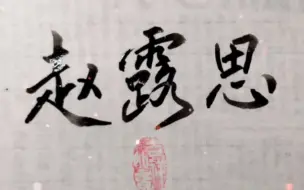 赵露思